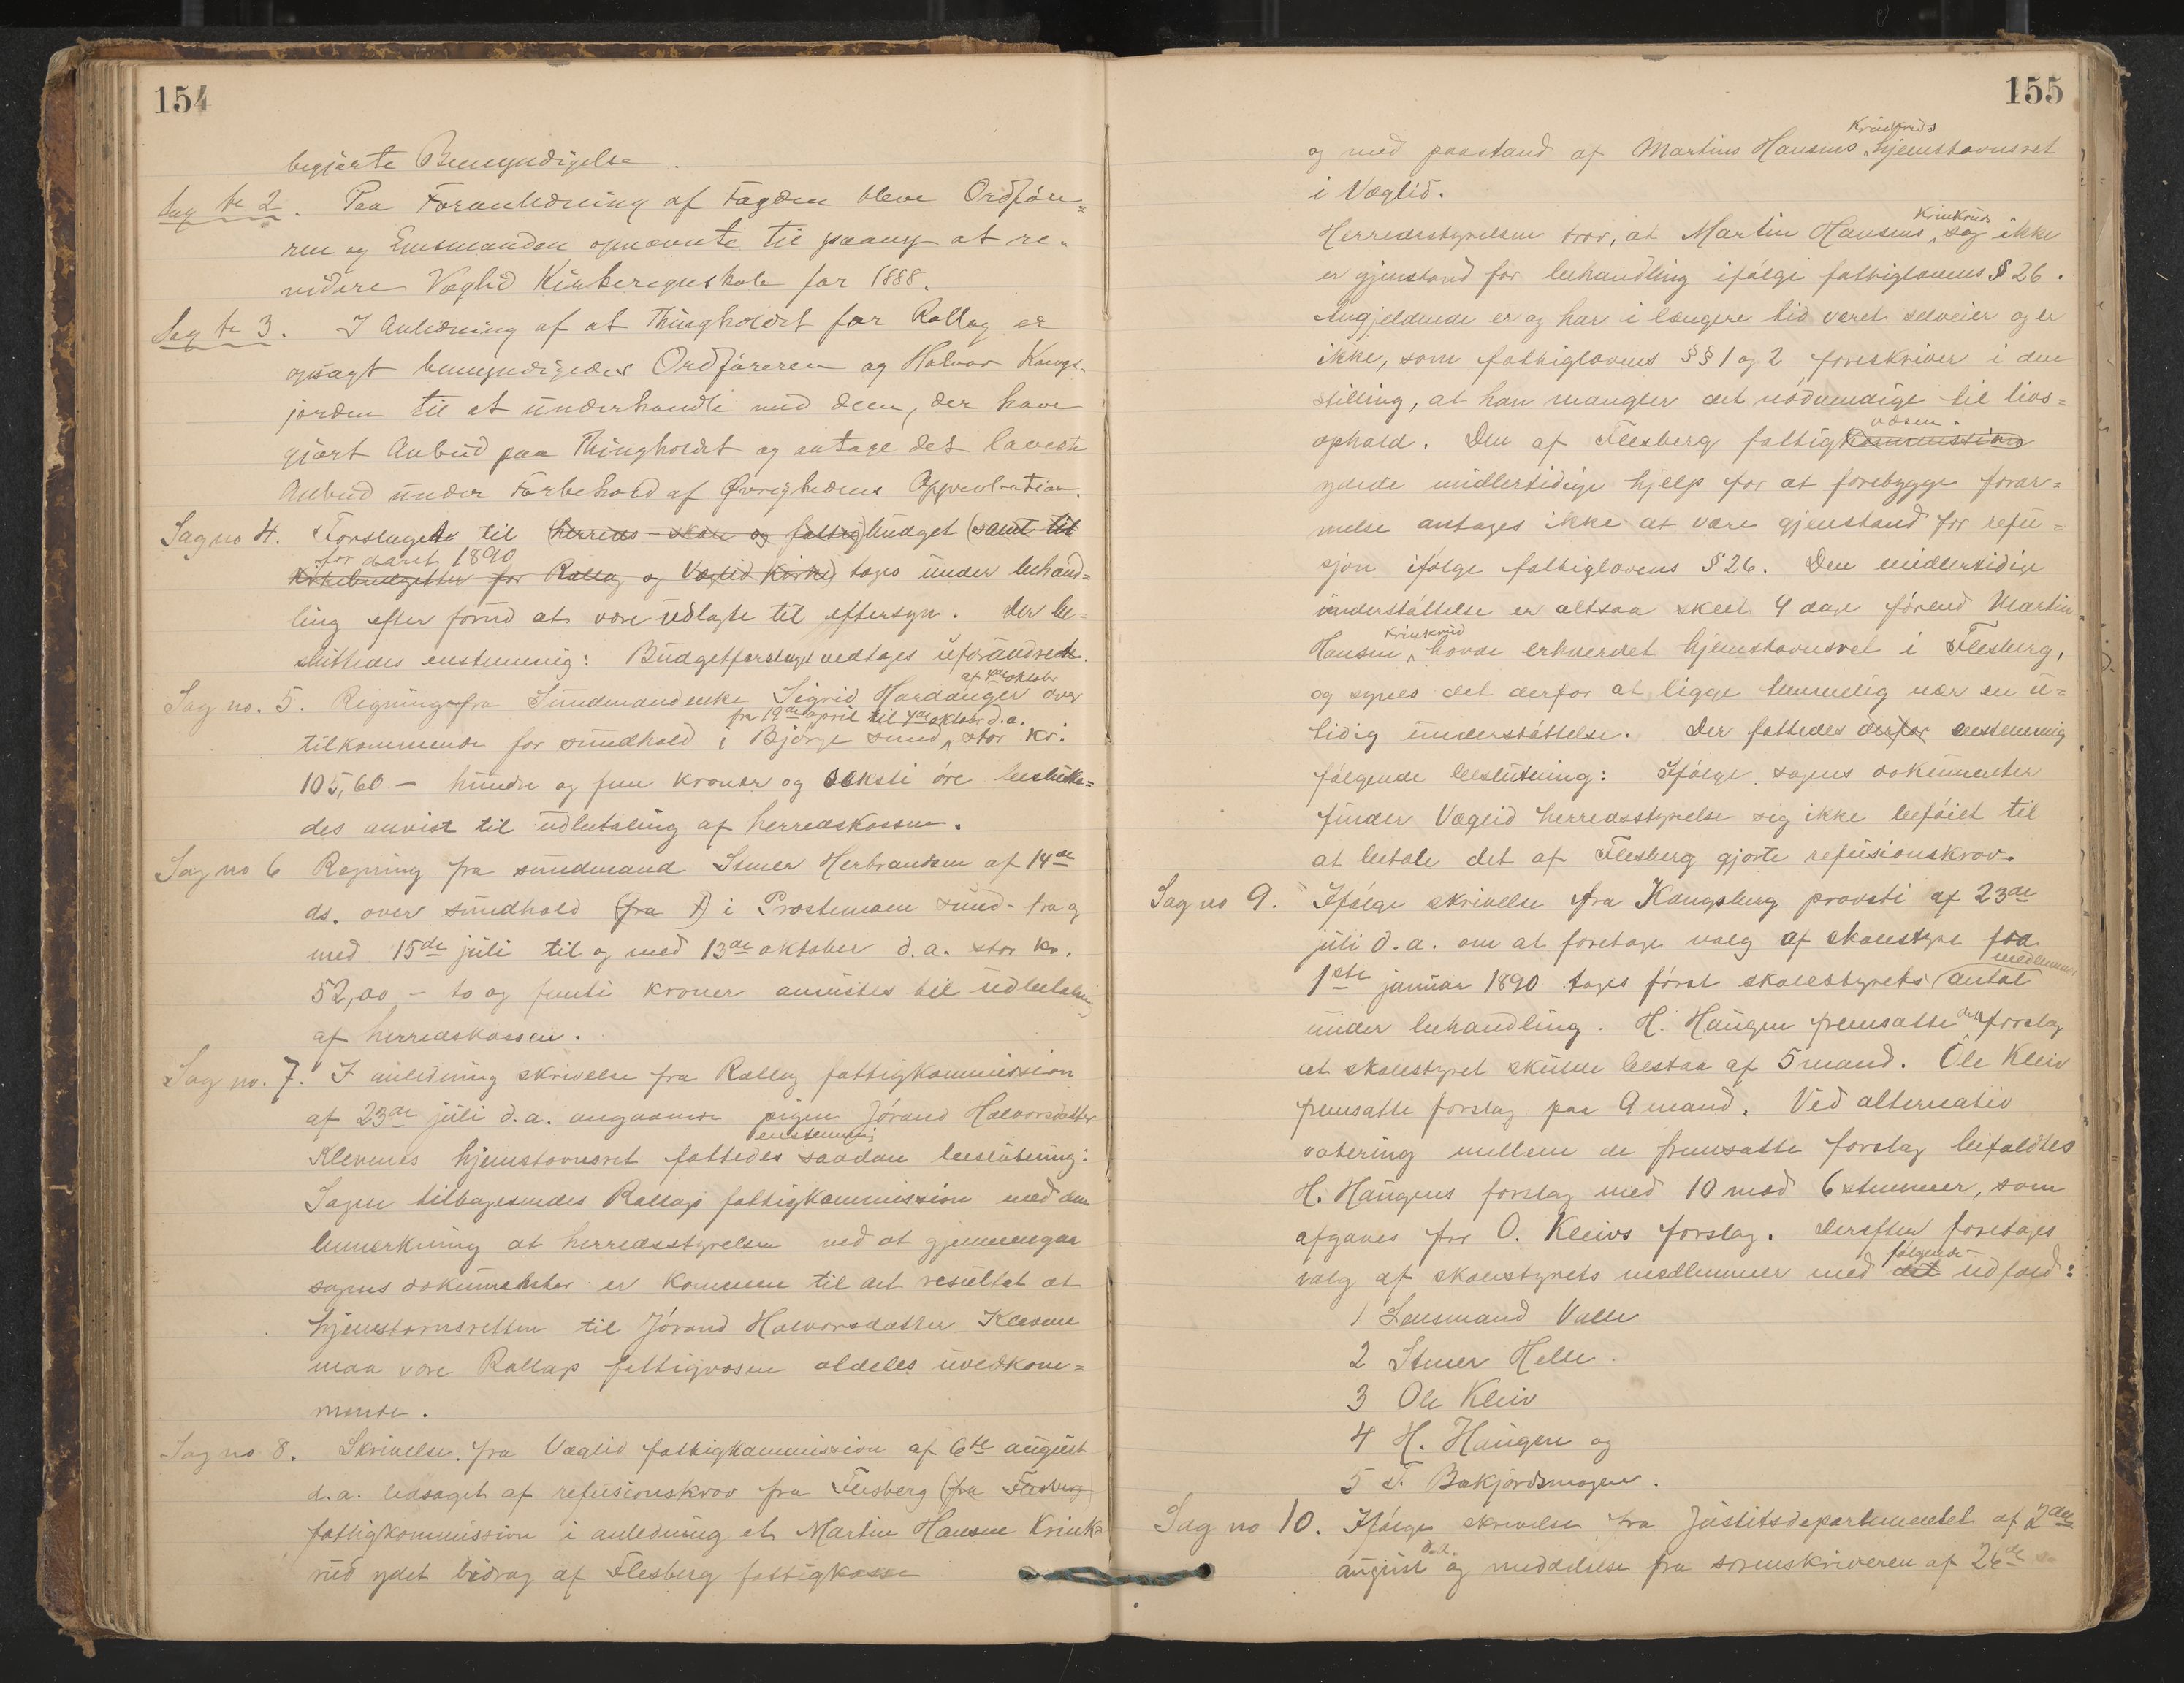 154
begjærte Bemyndigelse.
Sag № 2. Paa Foranledning af Fogden bleve Ordføre=
ren og Lensmanden opnævnte til paany at re=
videre Væglid Kirkeregnskab for 1888.
Sag № 3. I Anledning af at Thingholdet for Rollag er
opsagt bemyndigedes Ordføreren og Halvor Kongs-
jorden til at underhandle med dem, der have
gjort Anbud paa Thingholdet og antage det laveste
Anbud under Forbehold af Øvrighedens Approbation.
Sag no 4. Forslaget til (herreds- skole og fattig) budget (samt til
for aaret 1890
kirkebudgetter for Rollag og Væglid kirke) toges under behand=
ling efter forud at være udlagte til eftersyn. Der be=
sluttedes enstemmig: Budgetforslaget vedtages uforandret.
af 4de oktober
Sag no. 5. Regning fra Sundmandenke Sigrid Hardanger over
fra 19de april til 4de oktober d.a.
tilkommende for sundhold i Bjørge sund, stor kr.
105,60 – hundre og fem kroner og seksti øre beslutte=
des anvist til udbetaling af herredskassen.
Sag no 6 Regning fra sundmand Stener Herbrandsen af 14de
ds. over sundhold (fra 1) i Prestemoen sund - fra og
med 15de juli til og med 13de oktober d.a. stor kr.
52,00 – to og femti kroner anvistes til udbetaling
af herredskassen.
Sag no. 7. I anledning skrivelse fra Rollag fattigkommission
af 23de juli d.a. angaaende pigen Jørand Halvorsdatter
enstemmig
Klevenes hjemstavnsret fattedes saadan beslutning:
Sagen tilbagesendes Rollags fattigkommission med den
bemerkning at herredsstyrelsen ved at gjennemgaa
sagens dokumenter er kommen til det resultat at
hjemstavnsretten til Jørand Halvorsdatter Kleven
maa være Rollags fattigvæsen aldeles uvedkom=
mende.
Sag no 8. Skrivelse fra Væglid fattigkommission af 6te august
d.a. ledsaget af refusionskrav fra Flesberg (fra Flesberg)
fattigkommission i anledning et Martin Hansen Krink=
rud ydet bidrag af Flesberg fattigkasse
155
Krinkruds
og med paastand af Martins Hansens hjemstavnsret
i Væglid.
Krinkruds
Herredsstyrelsen tror, at Martin Hansens sag ikke
er gjenstand for behandling ifølge fattiglovens § 26.
Angjeldende er og har i længere tid været selveier og er
ikke, som fattiglovens §§ 1 og 2 foreskriver i den
stilling, at han mangler det nødvendige til livs=
væsen
ophold. Den af Flesberg fattigkommission
ydede midlertidige hjelp for at forebygge forar=
melse antages ikke at være gjenstand for refu=
sjon ifølge fattiglovens § 26. Den midlertidige
understøttelse er altsaa skeet 9 dage førend Martin
Krinkrud
Hansen havde erhvervet hjemstavnsret i Flesberg,
og synes det derfor at ligge temmelig nær en u=
tidig understøttelse. Der fattedes derfor enstemmig
følgende beslutning: Ifølge sagens dokumenter
finder Væglid herredsstyrelse sig ikke beføiet til
at betale det af Flesberg gjorte refusionskrav.
Sag no 9. Ifølge skrivelse fra Kongsberg provsti af 23de
juli d.a. om at foretage valg af skolestyre fra
medlemmer
1ste januar 1890 toges først skolestyrets antal
under behandling. H. Haugen fremsatte det forslag
at skolestyret skulde bestaa af 5 mand. Ole Kleiv
fremsatte forslag paa 9 mand. Ved alternativ
votering mellem de fremsatte forslag bifaldtes
H. Haugens forslag med 10 mod 6 stemmer, som
afgaves for O. Kleivs forslag. Derefter foretages
følgende
valg af skolestyrets medlemmer med det udfald:
1 Lensmand Valle
2 Stener Helle.
3 Ole Kleiv
4 H. Haugen og
5 T. Bakjordsmogen.
Sag no 10. Ifølge skrivelse fra Justitsdepartementet af 2den
d.a.
august og meddelelse fra sorenskriveren af 26de